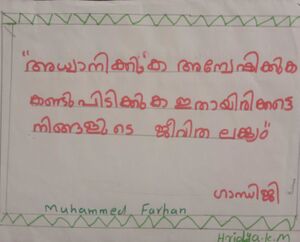 "അധ്വാനിക്കുക അന്വേഷിക്കുക
കണ്ടുപിടിക്കുക ഇതായിരിക്കട്ടെ
നിങ്ങളുടെ ജീവിത ലക്ഷ്യം"
ഗാന്ധിജി
Muhammed Farhan
Hridya.K.M